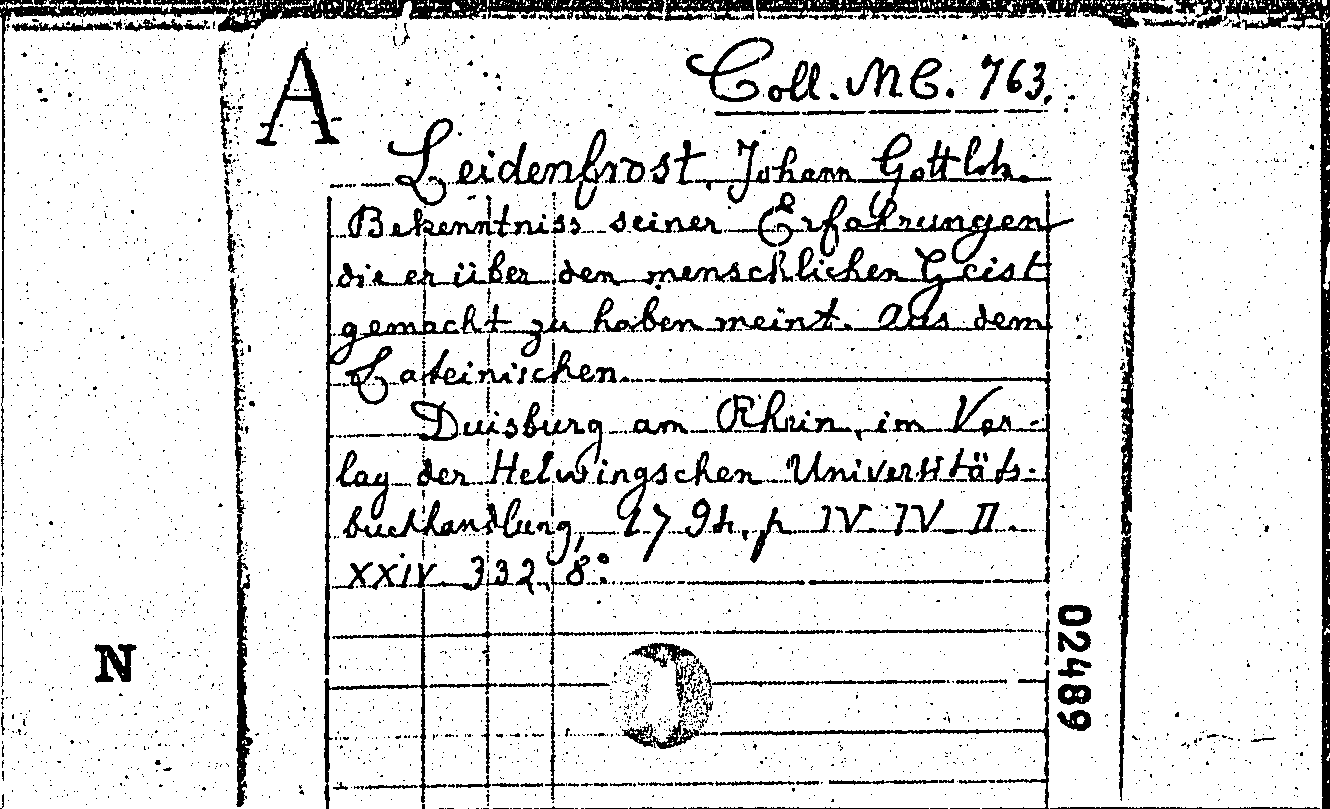 A
Coll. MC. 763.
Leidenfrost, Johann Gottlob.
Bekenntniss seiner Erfahrungen
die er über den menschlichen Geist
gemacht zu haben meint. Aus dem
Lateinischen.
Duisburg am Rhein, im Ver-
lag der Helwingschen Universitäts-
buchhandlung, 1794. p IV. IV. II.
XXIV. 332. 8º
N
02489